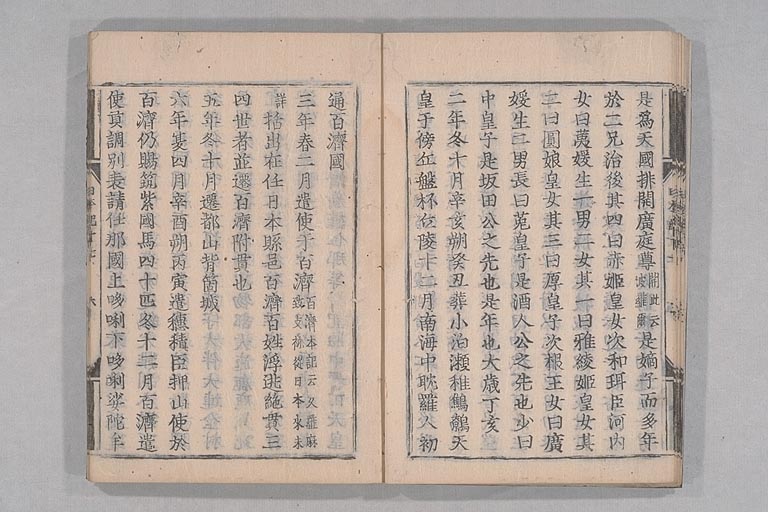 是爲天國排開廣庭尊開此云波羅企是嫡子而多年
於二兄治後其四曰赤姬皇女次和珥臣河內
女曰荑媛生一男二女其一曰雅綾姬皇女其
二曰圓娘皇女其三曰厚皇子次根王女曰廣
媛生二男長曰菟皇子是酒人公之先也少曰
中皇子是坂田公之先也是年也大歲丁亥
二年冬十月辛亥朔癸丑葬小泊瀨稚鷦鷯天
皇于傍丘磐杯丘陵十二月南海中耽羅人初
通百濟國
三年春二月遣使于百濟百濟本記云久羅麻致支彌從日本來未
詳括出在任日本縣邑百濟百姓浮逃絕貫三
四世者並遷百濟附貫也
五年冬十月遷都山背筒城
六年夏四月辛酉朔丙寅遣穗積臣押山使於
百濟仍賜筑紫國馬四十匹冬十二月百濟遣
使貢調別表請任那國上哆唎下哆唎娑陀牟